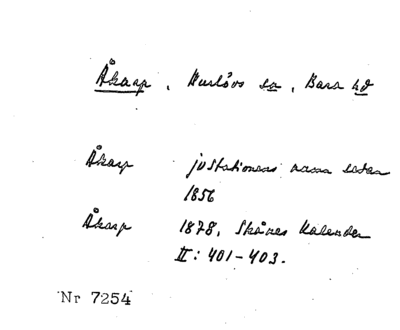 Åkarp, Burlövs sn, Bara hd
Åkarp jvstationens namn sedan
1856
Åkarp 1878. Skånes Kalender
II: 401-403.
Nr 7254